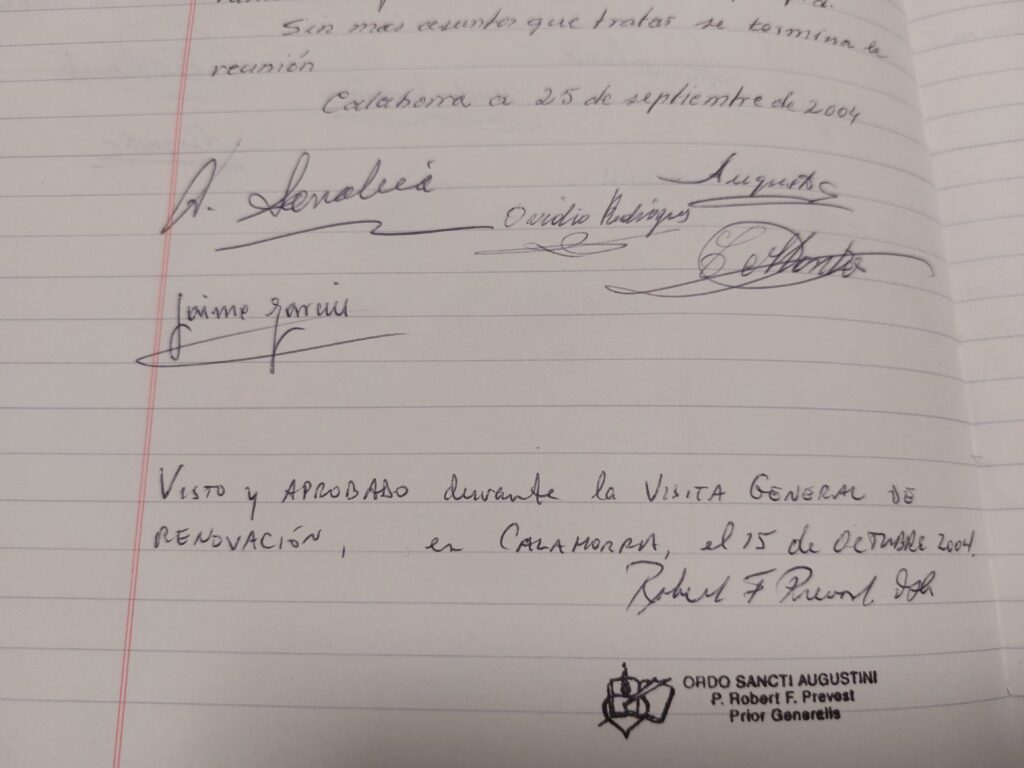 Sin mas asuntos que tratar se termina la
reunión
Calahorra a 25 de septiembre de 2004
A.
Augusto
Ovidio Rodrigues
Jaime Garcia
VISTO y APROBADO durante la VISITA GENERAL DE
RENOVACIÓN, en CALAHORRA, el 15 de OCTUBRE 2004.
Robert F Prevost OSA
ORDO SANCTI AUGUSTINI
P. Robert F. Prevost
Prior Generalis